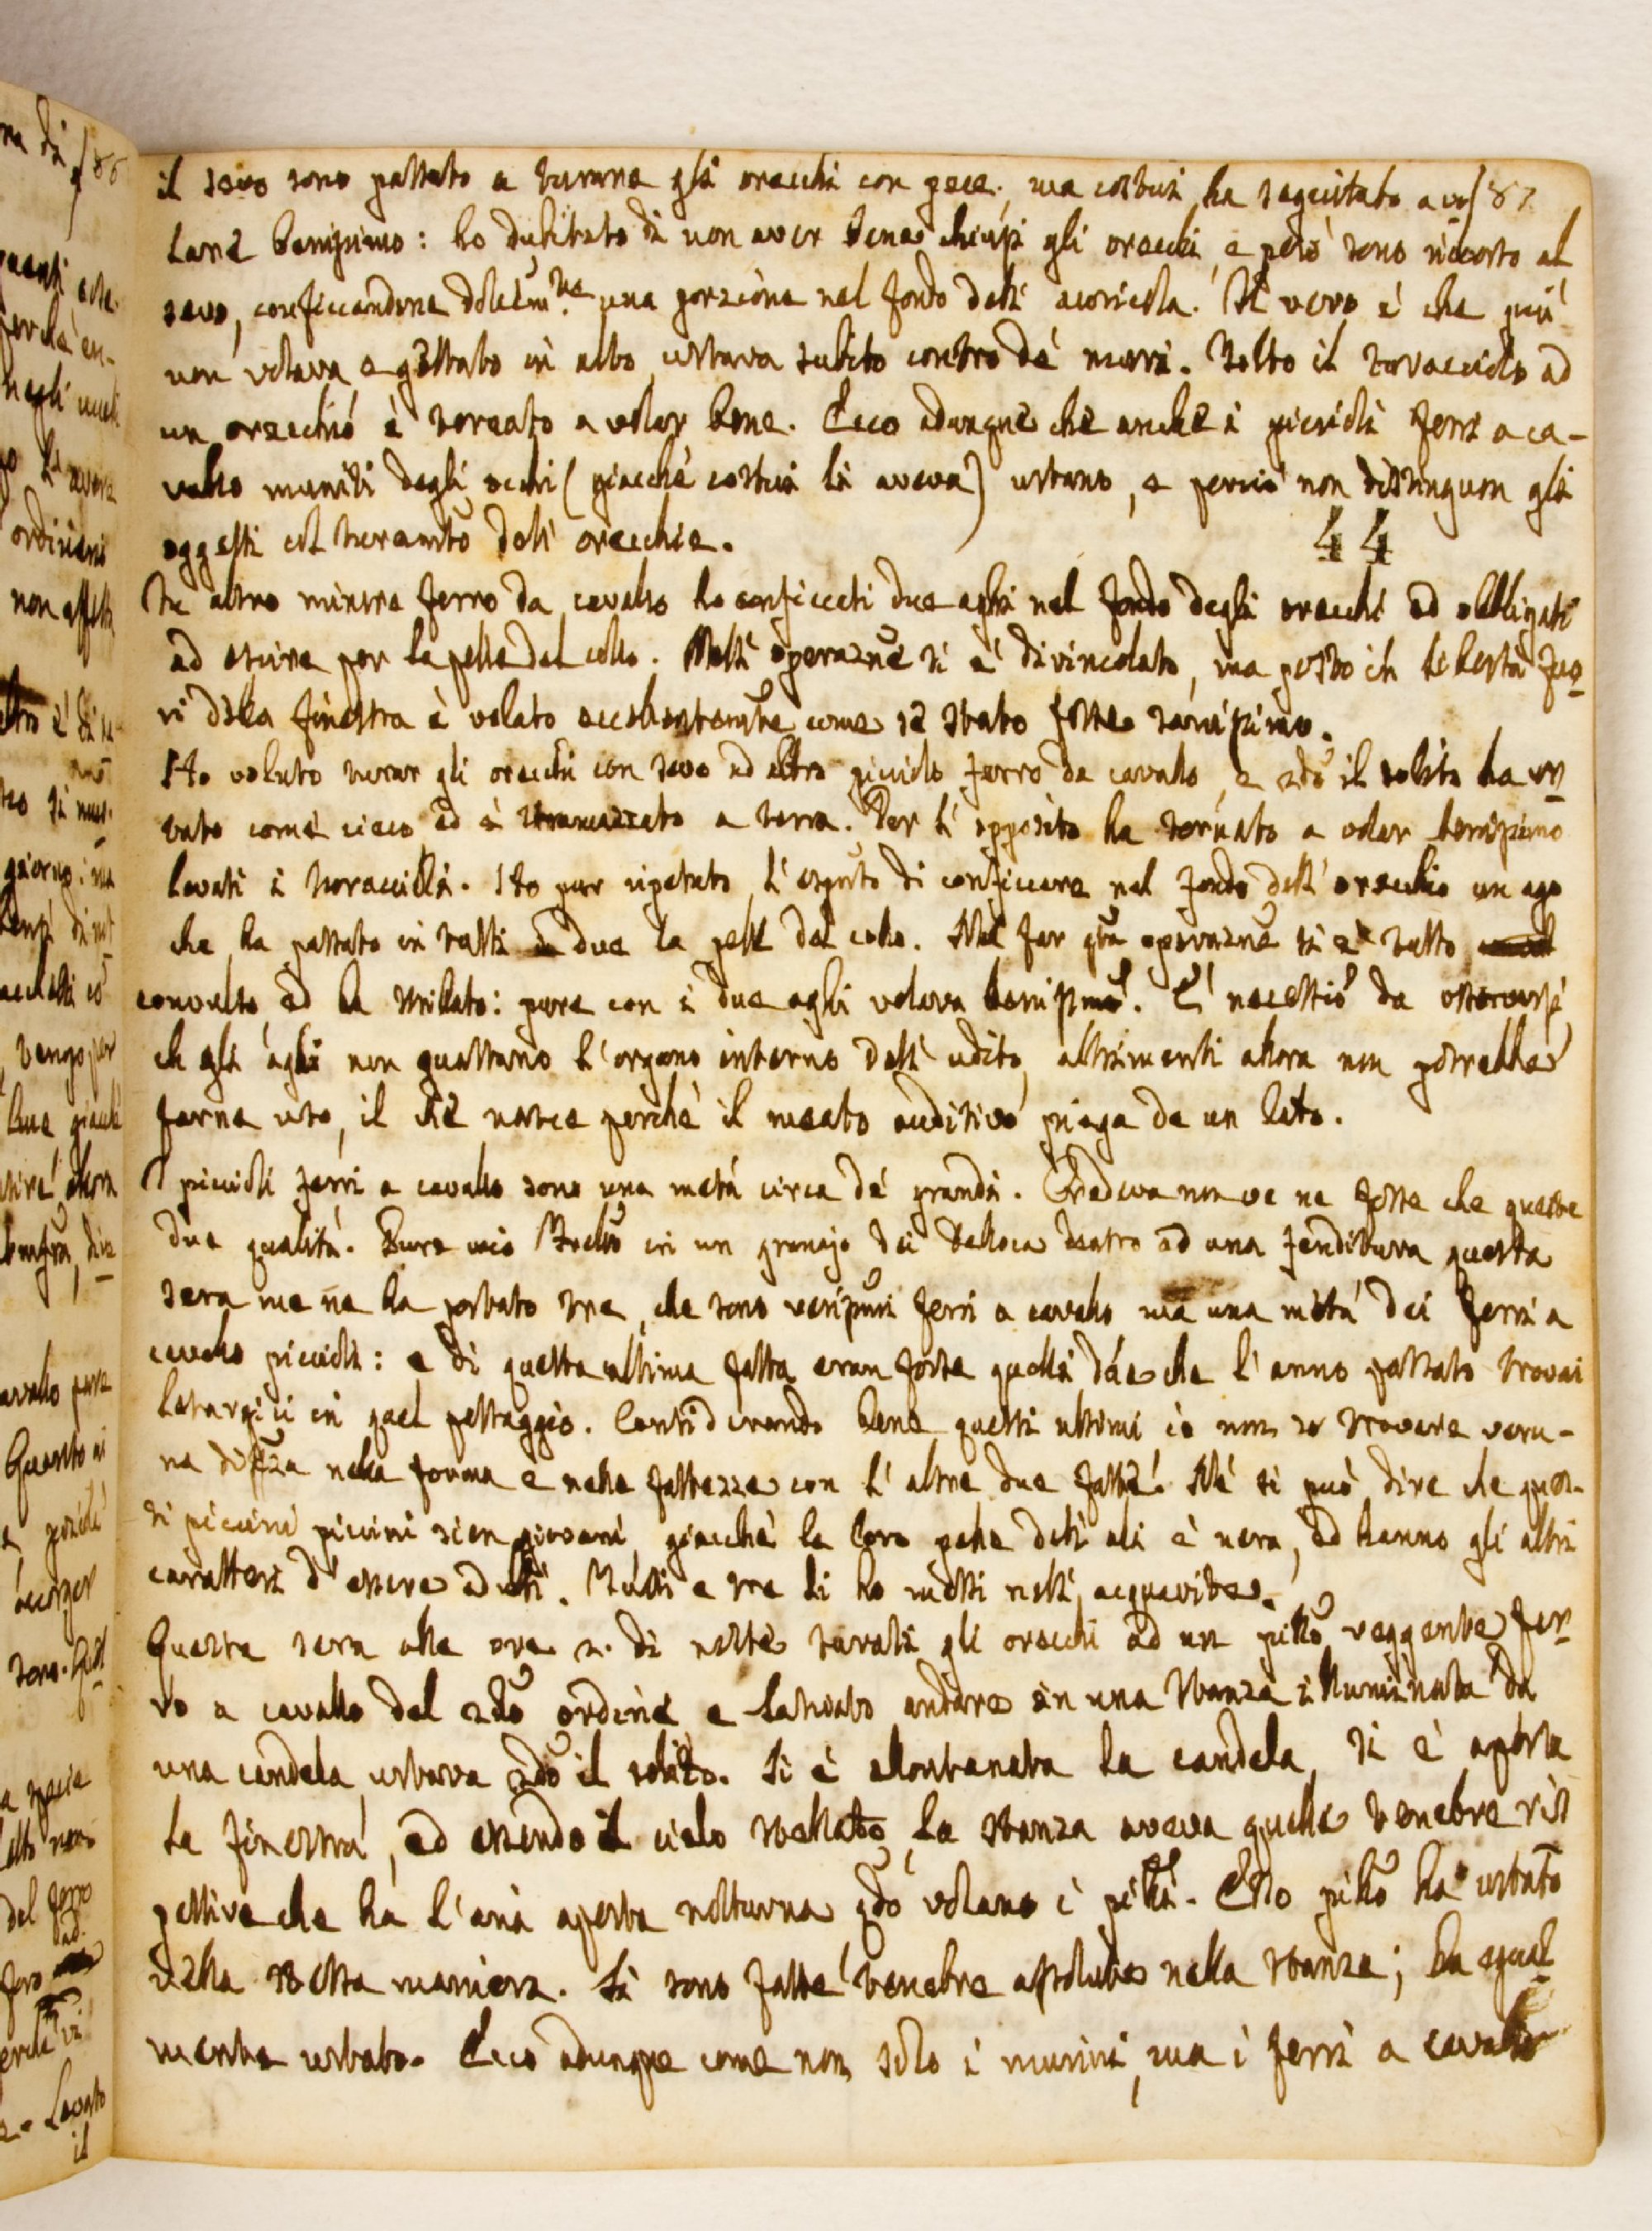 il sevo sono passato a turarne gli orecchi con pece. ma costui ha seguitato a vo/87
lare benissimo: ho dubitato di non aver bene chiusi gli orecchi, e però sono ricorso al
sevo, conficcandone dolcem.te una porzione nel fondo dell' auricola. Il vero è che più
non volava, e gettato in alto urtava subito contro de' muri. Tolto il turacciolo ad
un orecchio è tornato a volar bene. Ecco adunque che anche i piccioli ferri a ca-
vallo muniti degli occhi (giacchè costui li aveva) urtano, e perciò non distinguon gli
oggetti col turam.to dell' orecchie.
44
In altro minore ferro da cavallo ho conficcati due aghi nel fondo degli orecchi ed obbligati
ad escire per la pelle del collo. Nell' operaz.ne si è divincolato, ma posto in libertà fuo-
ri della finestra è volato eccellentem.te come se stato fosse sanissimo.
Ho voluto turar gli orecchi con sevo ad altro picciolo ferro da cavallo, e 2do il solito ha ur-
tato come cieco ed è stramazzato a terra. Per l' opposito ha tornato a volar benissimo
levati i turaccioli. Ho pur ripetuto l' esp.to di conficcare nel fondo dell' orecchio un ago
che ha passato in tutti e due la pelle del collo. Nel far q.ta operaz.ne si è tutto
convulso ed ha strillato: pure con i due aghi volava benissimo. È necess.io da osservarsi
che gli aghi non guastano l' organo interno dell' udito, altrimenti allora non potrebbe
farne uso, il che nasce perchè il meato auditivo piega da un lato.
I piccioli ferri a cavallo sono una metà circa de' grandi. Credeva non ve ne fosse che queste
due qualità. Pure mio in un granajo dei dentro ad una fenditura questa
sera me ne ha portato tre, che sono verissimi ferri a cavallo ma una metà dei ferri a
cavallo piccioli: e di questa ultima fatta eran forse quelli due che l' anno passato trovai
letargici in quel passaggio. Considerando bene questi ultimi io non so trovare veru-
na diff.za nella forma e nelle fattezze con l' altre due fatte. Nè si può dire che ques-
ti piccini piccini sien giovani, giacchè la loro pelle dell' ali è nera, ed hanno gli altri
caratteri d' essere adulti. Tutti e tre li ho messi nell' acquavite.
Questa sera alle ore 2. di notte turati gli orecchi ad un pip.llo veggente fer-
ro a cavallo del 2do ordine e lasciato andare in una stanza illuminata da
una candela, urtava 2do il solito. Si è allontanata la candela, si è aperta
la finestra, ed essendo il cielo stellato, la stanza aveva quelle tenebre ris
pettive che ha l' aria aperta notturna q.do volano i pip.lli. Esso pip.llo ha urtato
nella stessa maniera. Si sono fatte tenebre assolute nella stanza; ha equal-
mente urtato. Ecco adunque come non solo i murini, ma i ferri a cavallo